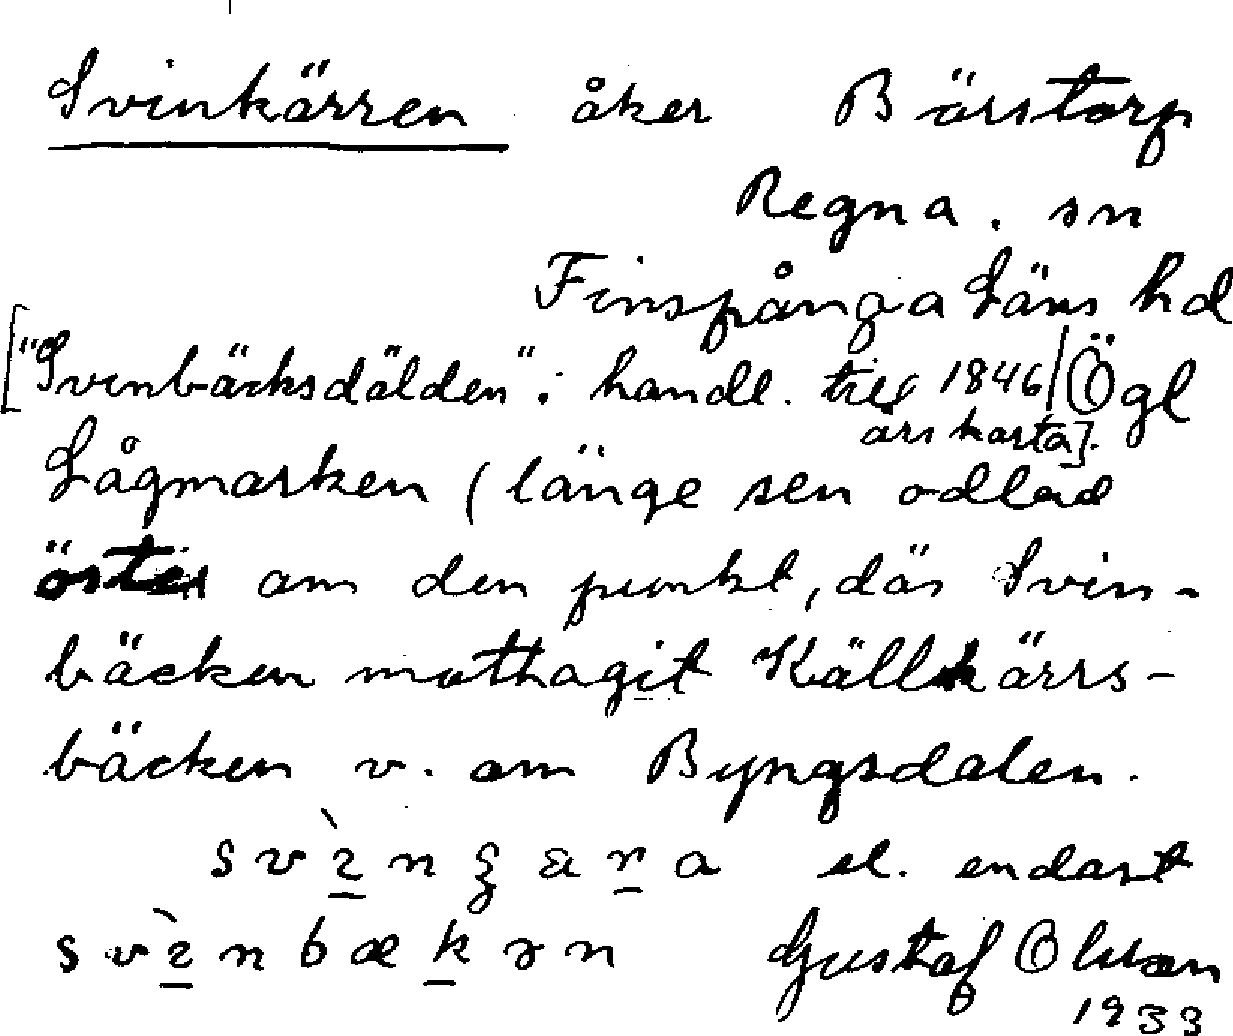 Svinkärren åker Bärstorp
Regna. sn
Finspånga Läns hd
["Svinbäcksdälden" i handl. till 1846 Ögl
års karta].
Lågmarken (länge sen odlad
öster om den punkt, där Svin-
bäcken mottagit Källkärrs-
bäcken v. om Byngsdalen.
el. endast
Gustaf Olsson
1933